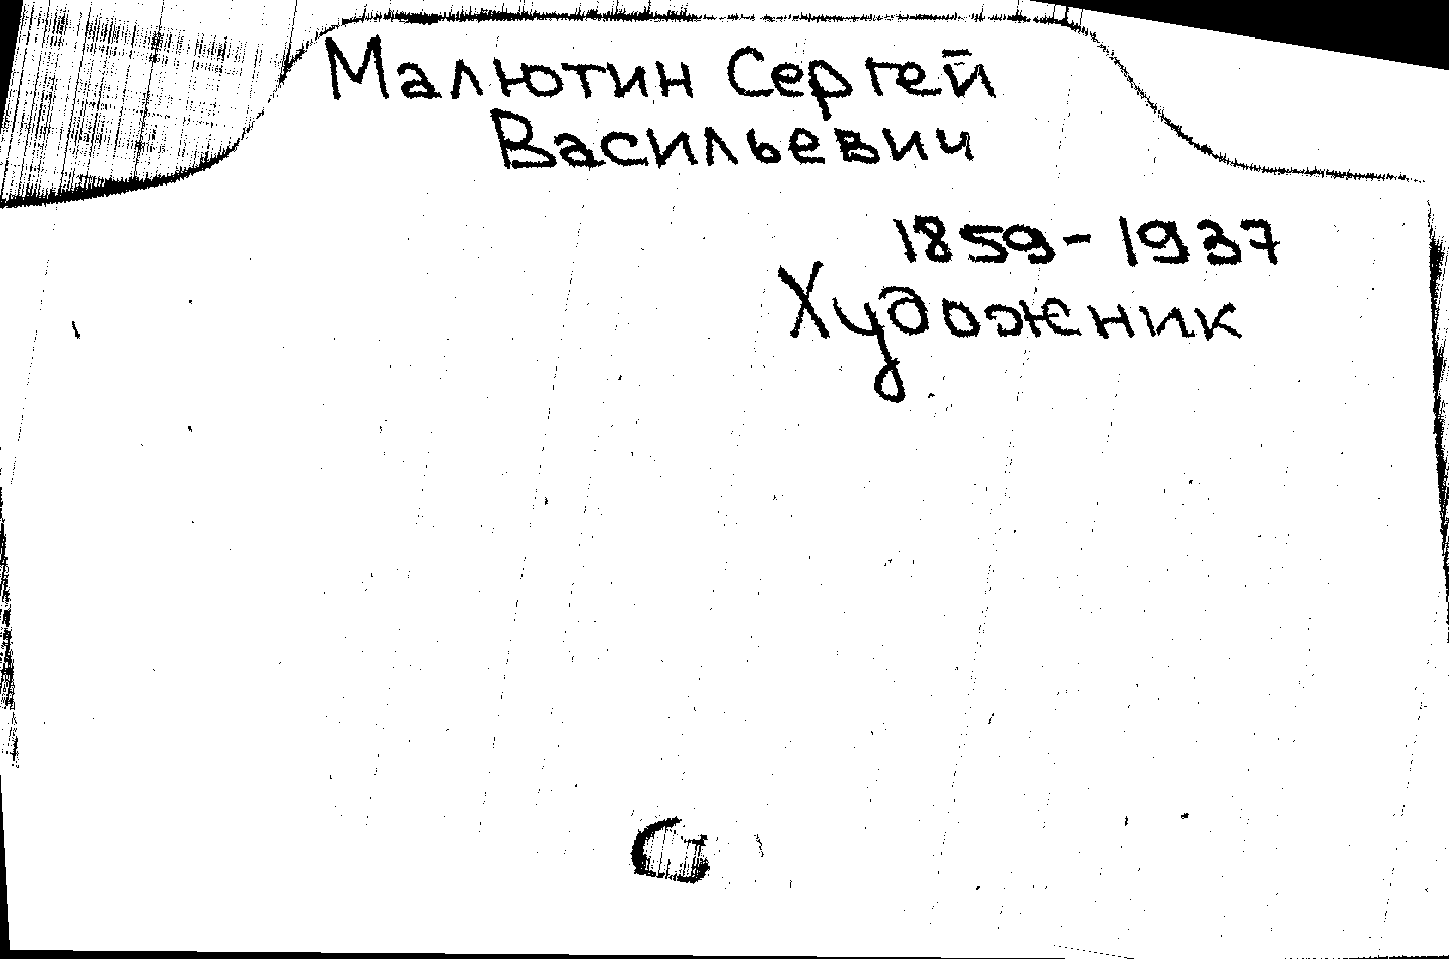 Малютин Сергей
Васильевич
1859-1937
Художник